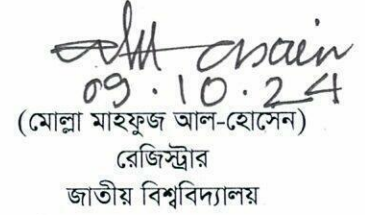 09.10.24
(মোল্লা মাহফুজ আল-হোসেন)
রেজিস্ট্রার
জাতীয় বিশ্ববিদ্যালয়